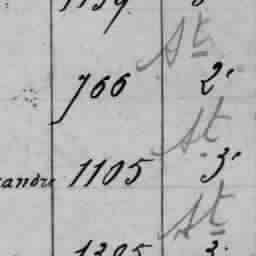 1159
St
766 2'
St
andre 1105 3'
St
1305 3.